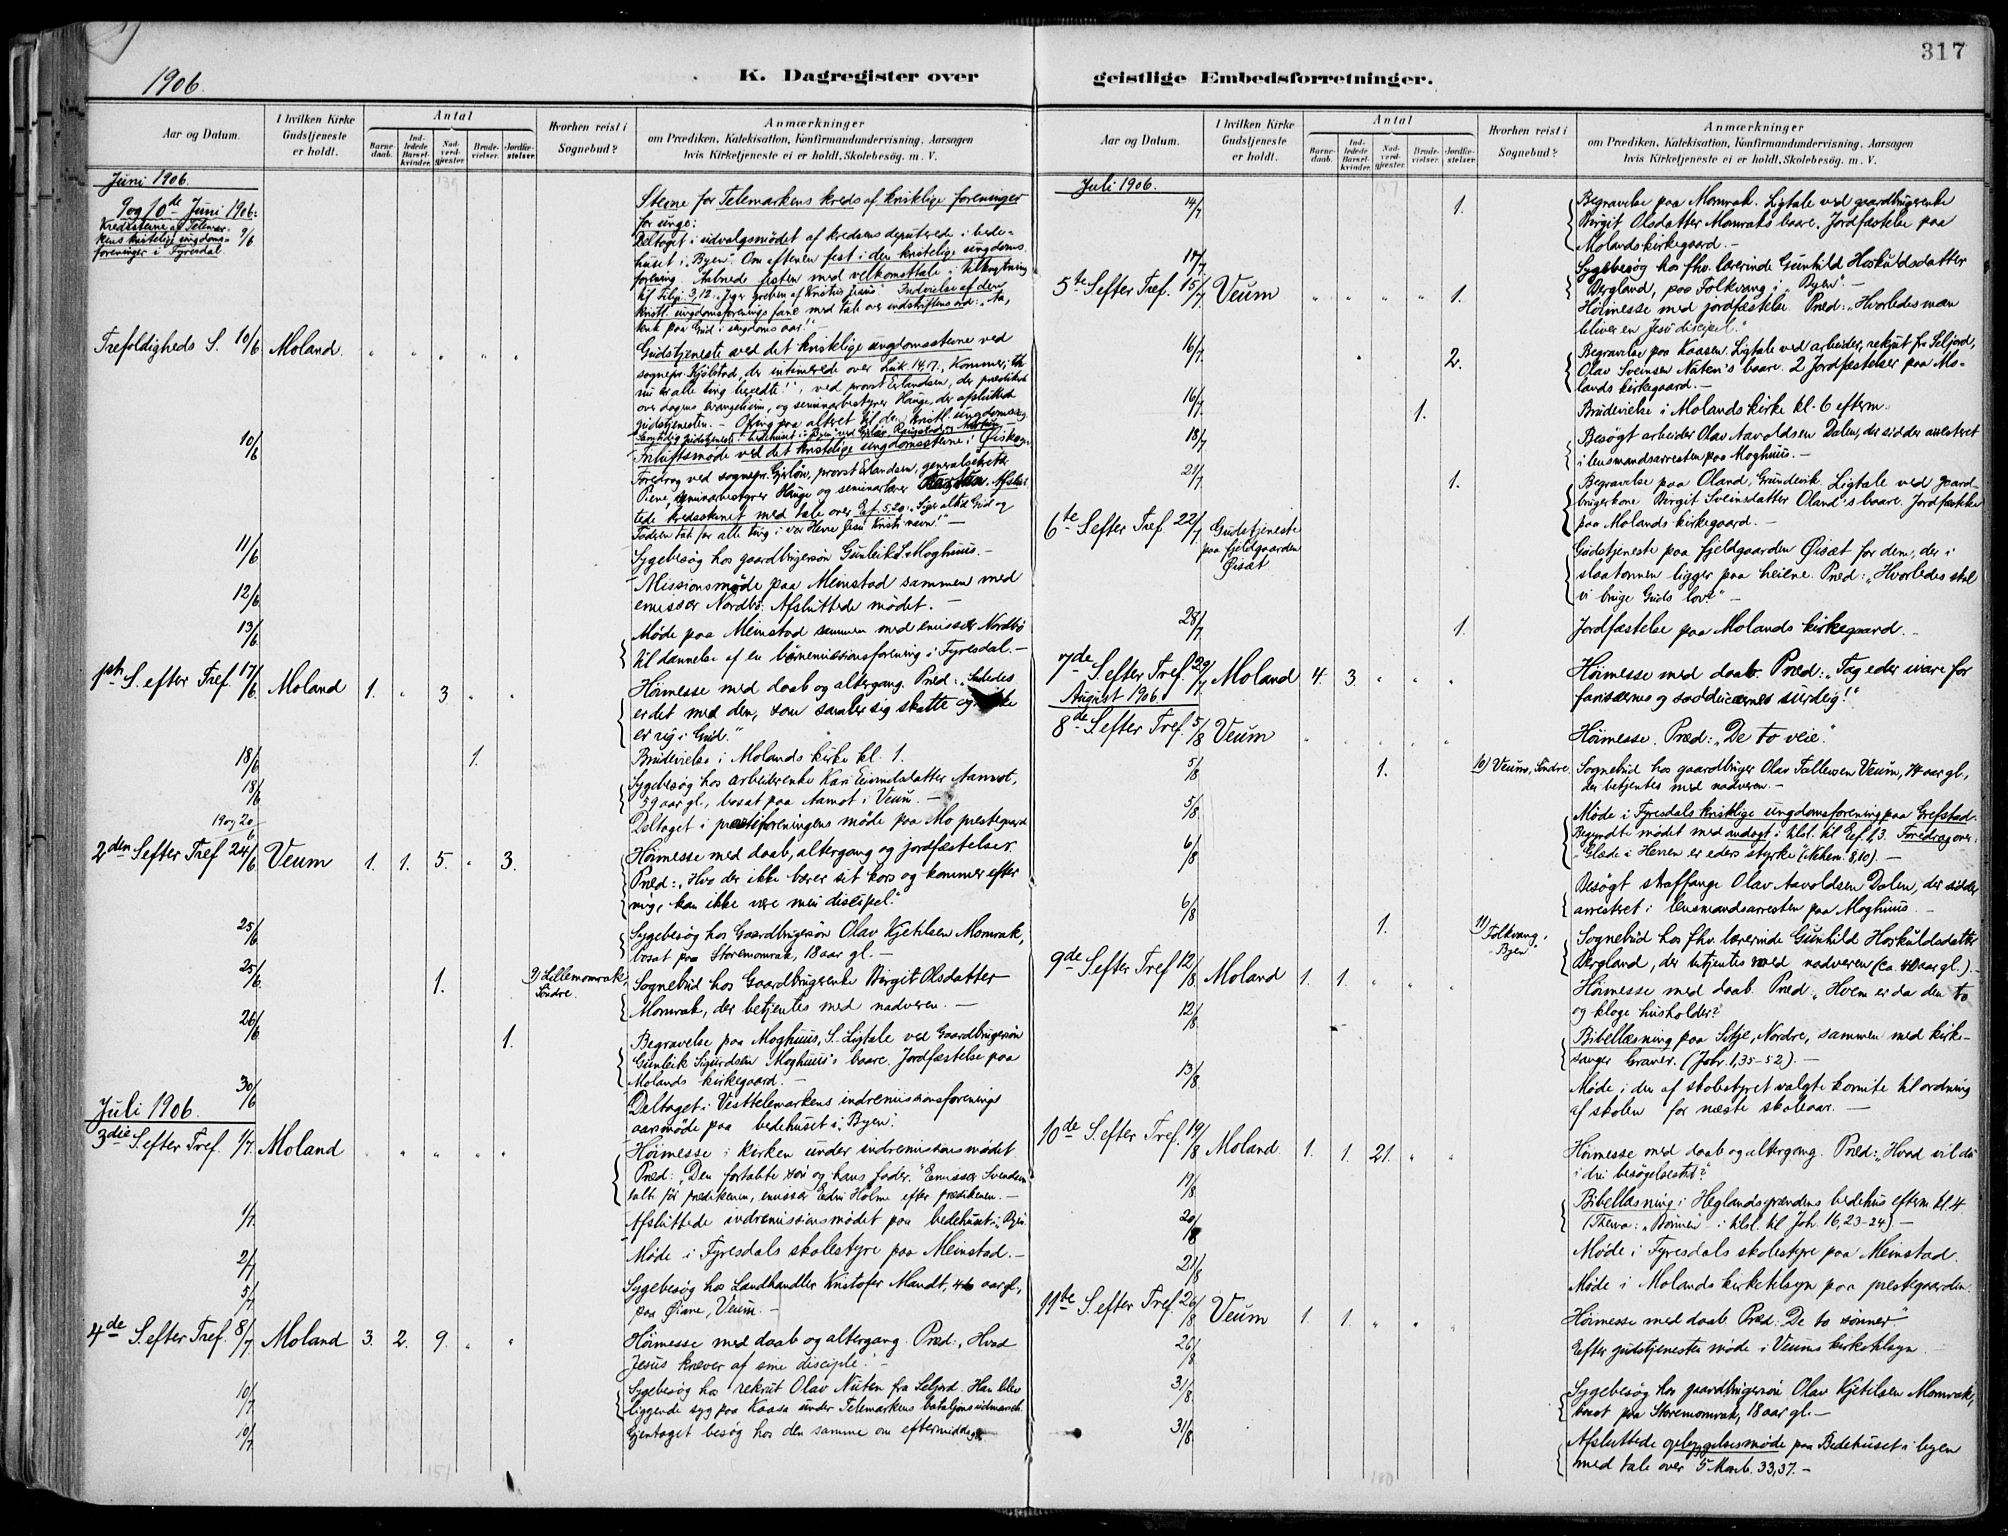 317
1906.
K. Dagregister over
geistlige Embedsforretninger.
Aar og Datum.
I hvilken Kirke Gudstjeneste er holdt.
Antal
Barnedaab.
Indledede Barselkvinder.
Nadverdgjester.
Brudevielser.
Jordfæstelser.
Hvorhen reist i Sognebud?
Anmærkninger
om Prædiken, Katekisation, Konfirmandundervisning. Aarsagen
hvis Kirketjeneste ei er holdt. Skolebesøg. m. V.
Juni 1906.
9 og 10de Juni 1906:
Kredsstevne af Telemar-
kens kristelige ungdoms- 9/6
foreninger i Fyresdal.
Stevne for Telemarkens kreds af kristelige foreninger
for unge:
Deltaget i udvalgsmødet af kredsens deputerede i bede-
huset i „Byen“. Om aftenen fest i den kristelige ungdoms
forening. Aabnede festen med velkomsttale i tilknytning
til Filip. 3,12: „Jeg er greben af Kristus Jesus“. Indvielse af den
kristl. ungdomsforenings fane med tale over indskriftens ord: „
tenk paa Gud i ungdoms aar!“
Trefoldigheds S. 10/6 Moland. " " " " "
Gudstjeneste ved det kristelige ungdomsstevne ved
sognepr. Kjølstad, der intimerede over Luk. 14,17: „Kommer, thi
nu er alle ting beredte!“, ved provst Erlandsen, der prædikede
over dagens evangelium, og seminarbestyrer Hauge, der afsluttede
gudstjenesten. – Ofring paa alteret til de kristl. ungdomsfor.
10/6
Friluftsmøde ved det kristelige ungdomsstevne i Øiskogen.
Foredrag ved sognepr. Gjerløw, provst Erlandsen, generalsekretær
Piene, seminarbestyrer Hauge og seminarlærer Afslut-
tede kredsstevnet med tale over Ef. 5,20: „Siger altid Gud og
Faderen tak for alle ting i vor Herre Jesu Kristi navn!“ –
11/6 Sygebesøg hos gaardbrugersøn Gunleik S. Moghuus. –
12/6 Missionsmøde paa Meinstad sammen med
emissær Nordbø. Afsluttede mødet. –
13/6 Møde paa Meinstad sammen med emissær Nordbø
til dannelse af en barnemissionsforening i Fyresdal. –
1ste S. efter Tref. 17/6 Moland 1. " 3 " "
Høimesse med daab og altergang. Præd: „Saaledes
er det med den, som samler sig skatte og ikke
er rig i Gud.“
18/6 1. Brudevielse i Molands kirke kl. 1.
18/6 Sygebesøg hos arbeiderenke Kari Eivindsdatter Aamot,
59 aar gl., bosat paa Aamot i Veum. –
19 og 20/6 Deltaget i presteforeningens møde paa Mo prestegaard
2den S. efter Tref. 24/6 Veum 1. 1. 5. " 3.
Høimesse med daab, altergang og jordfæstelser.
Præd: „Hvo der ikke bærer sit kors og kommer efter
mig, kan ikke være min discipel.“
25/6 Sygebesøg hos Gaardbrugersøn Olav Kjetilsen Momrak,
bosat paa Storemomrak, 18 aar gl. –
25/6 1. 9) Lillemomrak, Søndre.
Sognebud hos Gaardbrugerenke Birgit Olsdatter
Momrak, der betjentes med nadveren. –
26/6 1. Begravelse paa Moghuus, S. Ligtale ved Gaardbrugersøn
Gunleik Sigurdsen Moghuus's baare. Jordfæstelse paa
Molands kirkegaard. –
30/6 Deltaget i Vesttelemarkens indremissionsforenings
aarsmøde paa bedehuset i „Byen“.
Juli 1906.
3die S. efter Tref. 1/7 Moland " " " " "
Høimesse i kirken under indremissionsmødet.
Præd: „Den fortabte søn og hans fader.“ Emissær Svendsen
talt før prædikenen, emissær Edin Holme efter prædikenen. –
1/7 Afsluttede indremissionsmødet paa bedehuset i „Byen“.
2/7 Møde i Fyresdals skolestyre paa Meinstad. –
5/7 Sygebesøg hos Landhandler Kristofer Mandt, 46 aar gl.,
paa Øiane, Veum. –
4de S. efter Tref. 8/7 Moland 3. 2. 9. " "
Høimesse med daab og altergang. Præd: „Hvad
Jesus kræver af sine disciple.“ –
10/7 Sygebesøg hos rekrut Olav Nuten fra Seljord. Han blev
liggende syg paa Kaasa under Telemarkens bataljons udmarch.
10/7 Gjentaget besøg hos den samme om eftermiddag.
Aar og Datum.
I hvilken Kirke Gudstjeneste er holdt.
Antal
Barnedaab.
Indledede Barselkvinder.
Nadverdgjester.
Brudevielser.
Jordfæstelser.
Hvorhen reist i Sognebud?
Anmærkninger
om Prædiken, Katekisation, Konfirmandundervisning. Aarsagen
hvis Kirketjeneste ei er holdt. Skolebesøg. m. V.
Juli 1906.
14/7 1. Begravelse paa Momrak. Ligtale ved gaardbrugerenke
Birgit Olsdatter Momraks baare. Jordfæstelse paa
Molands kirkegaard. –
Sygebesøg hos fhv. lærerinde Gunhild Hoskuldsdatter
Bergland, paa Folkvang i „Byen“.
5te S. efter Tref. 15/7 Veum " " " " 1.
Høimesse med jordfæstelse. Præd: „Hvorledes man
bliver en Jesu discipel.“
16/7 2. Begravelse paa Kaasen. Ligtale ved arbeider, rekrut fr. Seljord,
Olav Sveinsen Nuten's baare. 2 Jordfæstelser paa Mo-
lands kirkegaard. –
16/7 1. Brudevielse i Molands kirke kl. 6 efterm.
18/7 Besøgt arbeider Olav Aavoldsen Dalen, der sidder arresteret
i lensmandsarresten paa Moghuus. –
21/7 1. Begravelse paa Øland, Grundevik. Ligtale ved gaard-
brugerkone Birgit Sveinsdatter Øland's baare. Jordfæstelse
paa Molands kirkegaard. –
6te S. efter Tref. 22/7 Gudstjeneste
paa fjeldgaarden
Øisæt
Gudstjeneste paa fjeldgaarden Øisæt for dem, der i
slaatonnen ligger paa heiene. Præd: „Hvorledes skal
vi bruge Guds lov?“ –
28/7 1. Jordfæstelse paa Molands kirkegaard. –
7de S. efter Tref. 29/7 Moland 4. 3. " " "
Høimesse med daab. Præd: „Tag eder ivare for
farisæernes og sadducæernes surdeig!“
August 1906.
8de S. efter Tref. 5/8 Veum " " " " "
Høimesse. Præd: „De to veie.“
5/8 1. 10) Veum, Søndre.
Sognebud hos gaardbruger Olav Tallevsen Veum, 74 aar gl.,
der betjentes med nadveren. –
5/8 Møde i Fyresdals kristelige ungdomsforening paa Grefstad.
Begyndte mødet med andagt i tilsl. til Ef. 1,3. Foredrag over:
„Glæde i Herren er eders styrke“ (Nehem. 8,10). –
6/8 Besøgt straffange Olav Aavoldsen Dalen, der sidder
arresteret i lensmandsarresten paa Moghuus. –
6/8 1. 11) Folkvang, Byen
Sognebud hos fhv. lærerinde Gunhild Hoskuldsdatter
Bergland, der betjentes med nadveren (ca. 40 aar gl.). –
9de S. efter Tref. 12/8 Moland 1. 1. " " "
Høimesse med daab. Præd: „Hvem er da den tro
og kloge husholder?
12/8 Bibellæsning paa Sitje, Nordre, sammen med kirke-
sanger Graver. (Joh. 1,35-52). –
13/8 Møde i den af skolestyret valgte komite til ordning
af skolen for næste skoleaar. –
10de S. efter Tref. 19/8 Moland 1. 1. 21. " "
Høimesse med daab og altergang. Præd: „Hvad vil du
i din besøgelsestid?“
19/8 Bibellæsning i Heglandsgrændens bedehus efterm. kl. 4.
(Thema: „Bønnen“ i tilsl. til Joh. 16, 23-24). –
20/8 Møde i Fyresdals skolestyre paa Meinstad.
21/8 Møde i Molands kirketilsyn paa prestegaarden.
11te S. efter Tref. 26/8 Veum 1. 1. " " "
Høimesse med daab. Præd: „De to sønner“
26/8 Efter gudstjenesten møde i Veums kirketilsyn.
31/8 Sygebesøg hos gaardbrugersøn Olav Kjetilsen Momrak,
bosat paa Storemomrak, 18 aar gl. –
31/8 Afsluttede opbyggelsesmøde paa Bedehuset i byen
med tale over 5 Moseb. 33,37. –